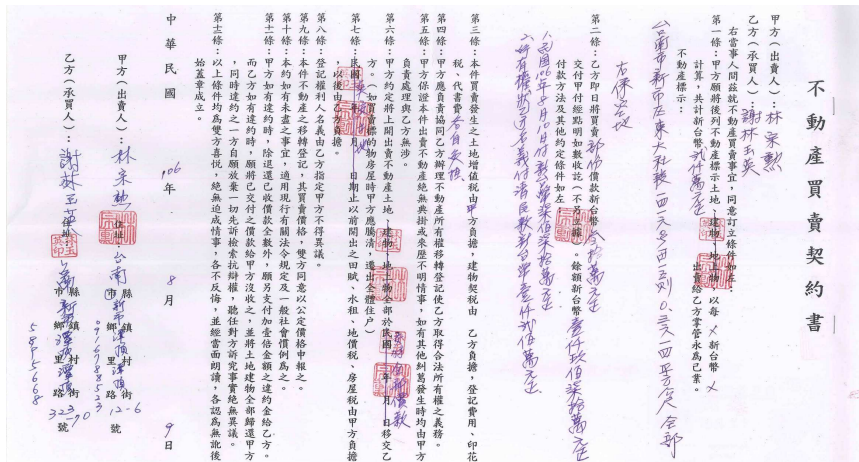 不動產買賣契約書
甲方(出賣人):林宋勲
乙方(承買人):謝林玉英
右當事人間茲就不動產買賣事宜,同意訂立條件如左:
第一條:甲方願將後列不動產標示土地,建物、地上物,以每 × 新台幣 ×
計算,共計新台幣貳仟萬元正 出賣給乙方掌管永為己業。
不動產標示:
台南市新市區
全部
右保安地
第二條:乙方即日將買賣部份價款新台幣叁拾萬元正
交付甲方經點明如數收訖(不另立據)。餘額新台幣壹仟玖佰柒拾萬元正
付款方法及其他約定條件如左
第三條:本件買賣發生之土地增值稅由甲方負擔,建物契稅由 乙方負擔,登記費用、印花
稅、代書費各自負擔
第四條:甲方應負責協同乙方辦理不動產所有權移轉登記使乙方取得合法所有權之義務。
第五條:甲方保證本件出賣不動產絕無典掛或來歷不明情事,如有其他糾葛發生時均由甲方
負責處理與乙方無涉。
第六條:甲方約定將上開出賣不動產土地,建物、地上物全部於民國 年 月 日移交乙
方。(如買賣標的物房屋時甲方應騰清,遷出全體住戶)
第七條:民國 年 月 日期止以前開出之田賦、水租、地價稅、房屋稅由甲方負擔
,以後由乙方負擔。
第八條:登記權利人名義由乙方指定甲方不得異議。
第九條:本件不動產之移轉登記,其買賣價格,雙方同意以公定價格申報之。
第十條:本約如有未盡之事宜,適用現行有關法令規定及一般社會慣例為之。
第十一條:甲方如有違約時,除退還已收價款全數外,願另支付加壹倍金額之違約金給乙方。
而乙方如有違約時,願將已交付之價款給甲方沒收之,並將土地建物全部歸還甲方
,同時違約之一方自願放棄一切先訴檢索抗辯權,聽任對方訴究事實絕無異議。
第十二條:以上條件均為雙方喜悦,絕無迫成情事,各不反悔,並經當面朗讀,各認為無訛後
始蓋章成立。
中華民國 106 年 8 月 9 日
甲方(出賣人):林宋勲 住址:台南 縣市 鄉鎮 村里 街路 12-6 號
0916988523
乙方(承買人):謝林玉英 住址:台南 縣市 鄉鎮 村里 街路 323-90 號
5895668